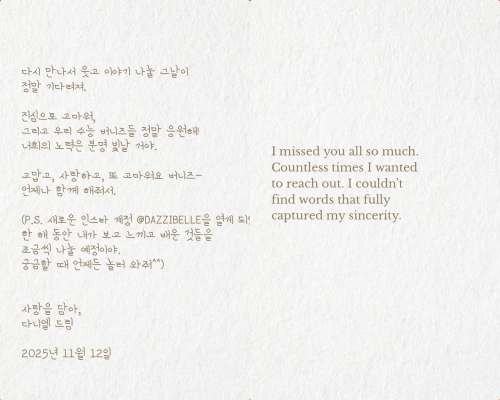 다시 만나서 웃고 이야기 나눌 그날이
정말 기다려져.
진심으로 고마워,
그리고 우리 수능 버니즈들 정말 응원해!
너희의 노력은 분명 빛날 거야.
고맙고, 사랑하고, 또 고마워요 버니즈-
언제나 함께 해줘서.
(P.S. 새로운 인스타 계정 @DAZZIBELLE을 열게 되었
한 해 동안 내가 보고 느끼고 배운 것들을
조금씩 나눌 예정이야.
궁금할 때 언제든 놀러 와줘^^)
사랑을 담아,
다니엘 드림
2025년 11월 12일
I missed you all so much.
Countless times I wanted
to reach out. I couldn't
find words that fully
captured my sincerity.